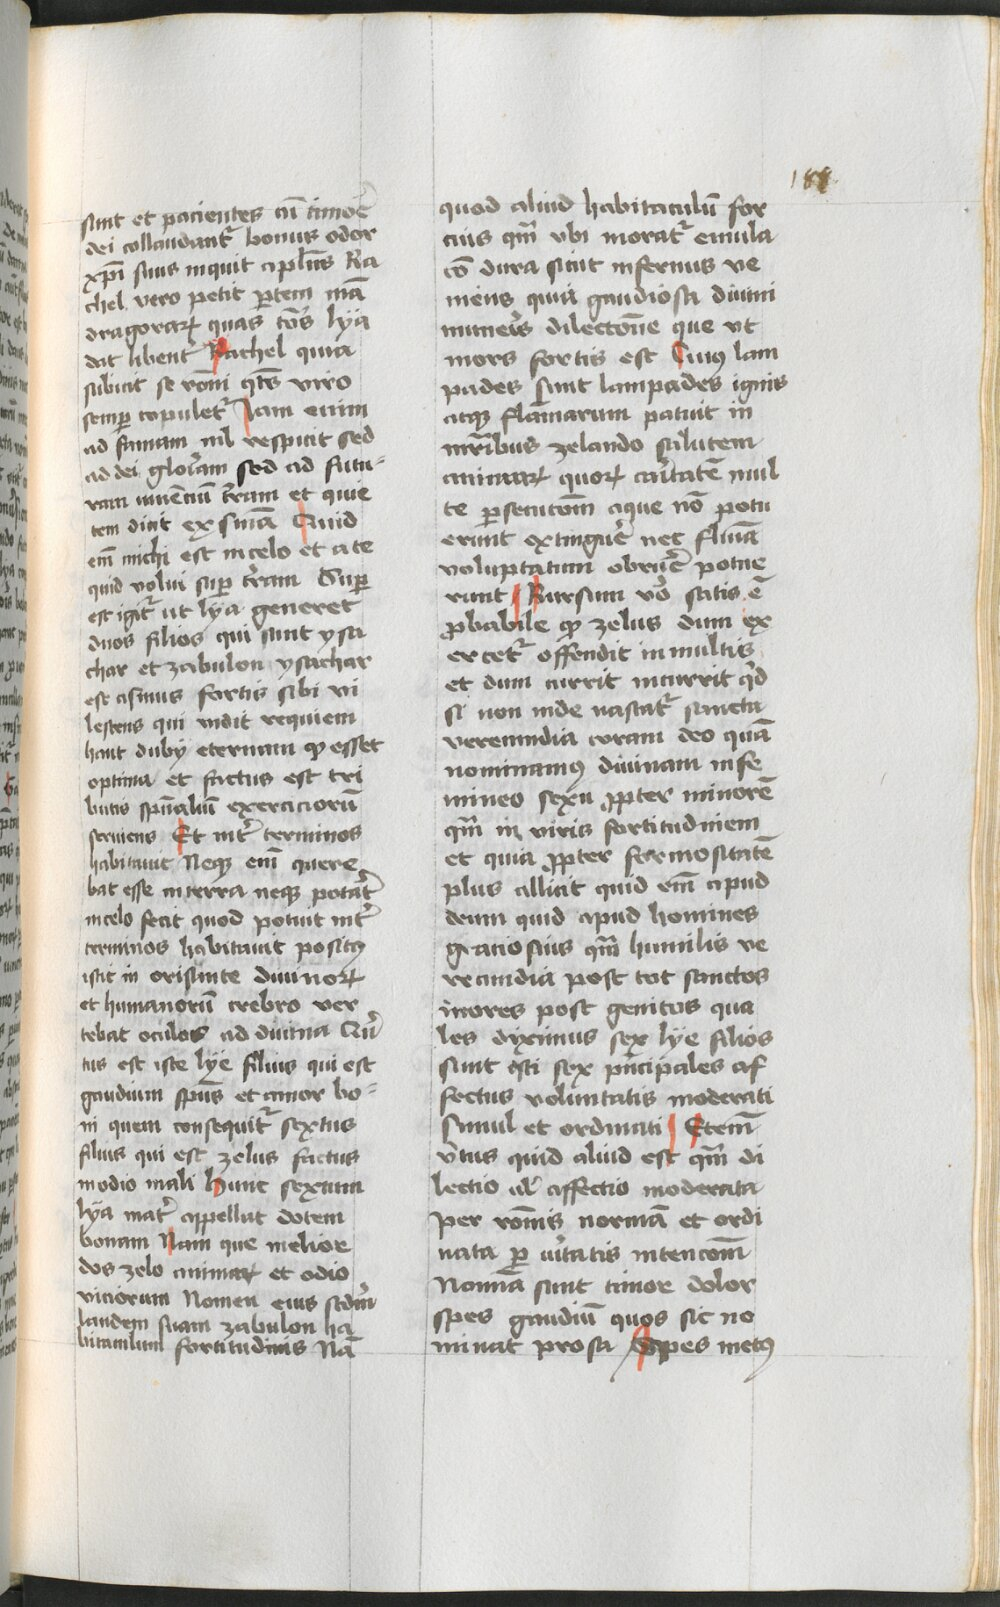 188
sint et pacientes cū timor̄
dei collaudant᷑ bonus odor
xp̄i sius inquit apl̄us Ra
chel vero petit ꝑtem mā
dragoraꝝ quas cōs lya
dat libent᷑ Rachel quia
subicit se rōni qͣtꝰ viro
semꝑ copulet᷑ Iam enim
ad famam nil respicit sed
ad dei gloriam sed ad futu-
ram viuēciū t᷑ram et quie
tem dicit ex sniā Quid
em̄ michi est in celo et a te
quid volui suꝑ t᷑ram Suꝑ
est igit᷑ ut lya generet
duos filios qui sunt ysa
char et zabulon ysachar
est asinus fortis sibi vi
lescens qui vidit requiem
haut duby eternam ꝙ esset
optima et factus est tri
butis spūaliū exerciciorū
seruiens Et int᷑ terminos
habitauit Neqꝫ em̄ quere
bat esse in terra neqꝫ potat᷑
in celo fecit quod potuit int᷑
terminos habitauit positꝰ
istic in orisonte diuinoꝝ
et humanorū crebro ver
tebat oculos ad diuina Qui᷑
tus est iste lye filius qui est
gaudium spūs et amor bo-
ni quem consequit᷑ sextus
filius qui est zelus factus
modio mali hunc sextum
lya mat᷑ appellat dotem
bonam Nam que melior
dos zelo animaꝝ et odio
viciorum Nomen eius scdm̄
laudem suam zabulon ha
bitaculum fortitudinis Nā
quod aliud habitaculū for
cius qm̄ vbi morat᷑ emula
cō dura sicut infernus ve
niens quia gaudiosa diuini
muneris dilectione que vt
mors fortis est Cuiꝰ lam
pades sunt lampades ignis
atqꝫ flāmarum patuit in
mr̄ibus zelando salutem
animaꝝ quoꝝ caritatē mul
te ꝑsecucōm aque nō potu
erunt extinguē nec fluuiā
voluptatum obruē potue
runt Rursum vō satis ē
ꝓbabile ꝙ zelus dum ex
ercet᷑ offendit in multis
et dum currit incurrit qͥd
si non inde nascat᷑ sancta
verecundia coram deo quā
nominamꝰ diuinam in fe
mineo sexu ꝓpter minorē
qm̄ in viris fortitudinem
et quia ꝓpter formositatē
plus allicit quid em̄ apud
deum quid apud homines
graciosius qm̄ humilis ve
recundia post tot sanctos
mores post genitos qua
les diximus sex lye filios
sunt isti sex pͥncipales af
fectus voluntatis moderati
simul et ordinati Etem̄
v᷑tus quid aliud est qm̄ di
lectio ul᷑ affectio moderata
per rōnis normā et ordi
nata ꝑ v᷑itatis intencōm
Nomīa sunt timor dolor
spes gaudiū quos sic no
minat prosa Spes metꝰ